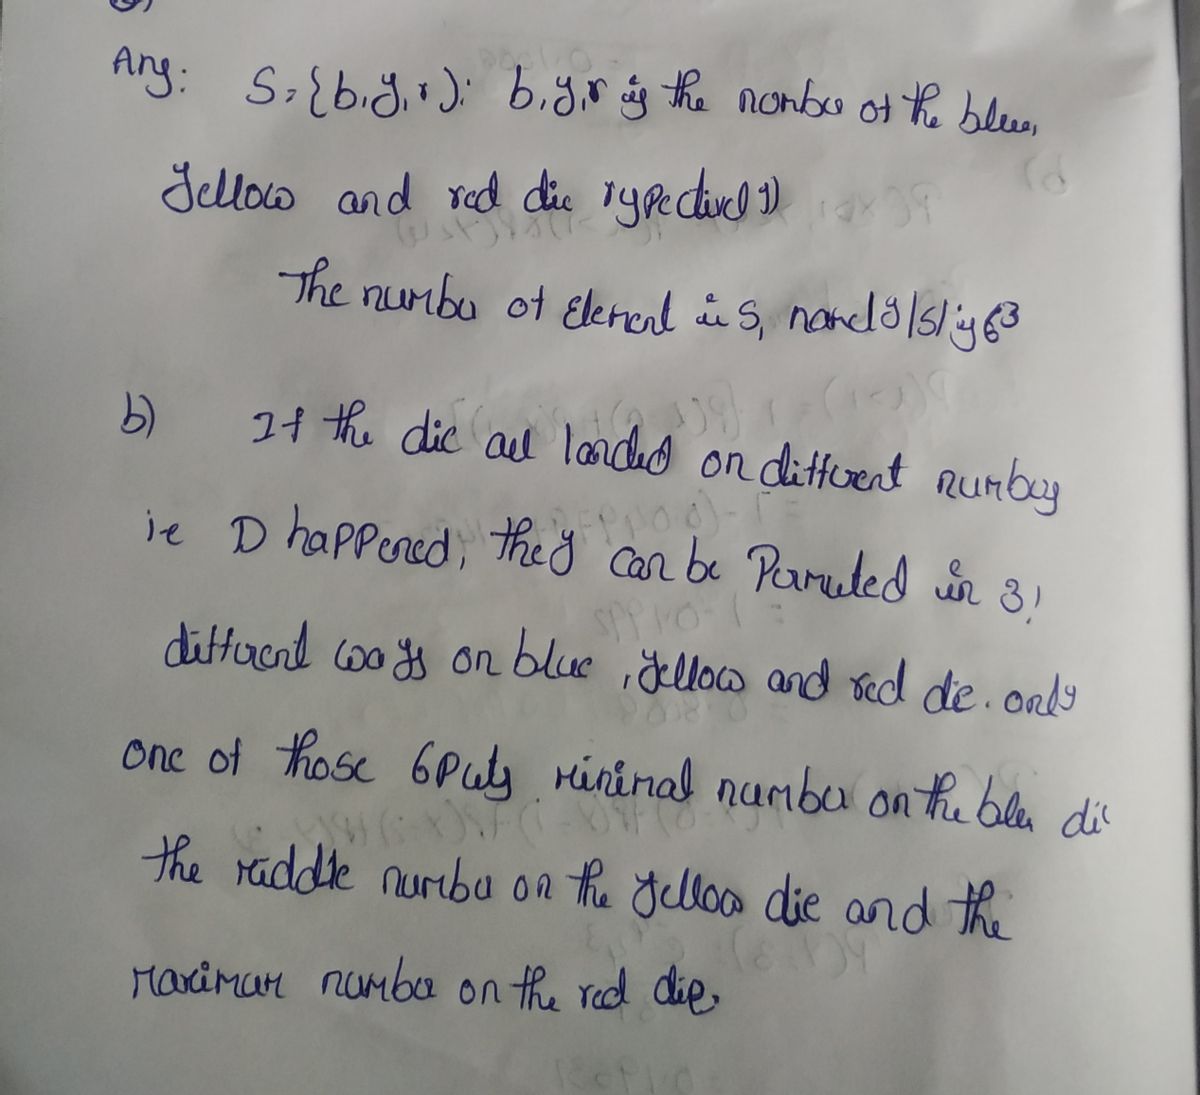 Ans: S = {b,y,r): b,y,r is the nonber of the blue,
Yellow and red die rspectively)
The number of Element in S, namely |S| is 6³
b) If the dic all landed on different numbers
ie D happened, they can be Permuted in 3!
different ways on blue, yellow and red die. only
one of those 6 Puts minimal number on the blue die
the middle number on the yellow die and the
maximum number on the red die.